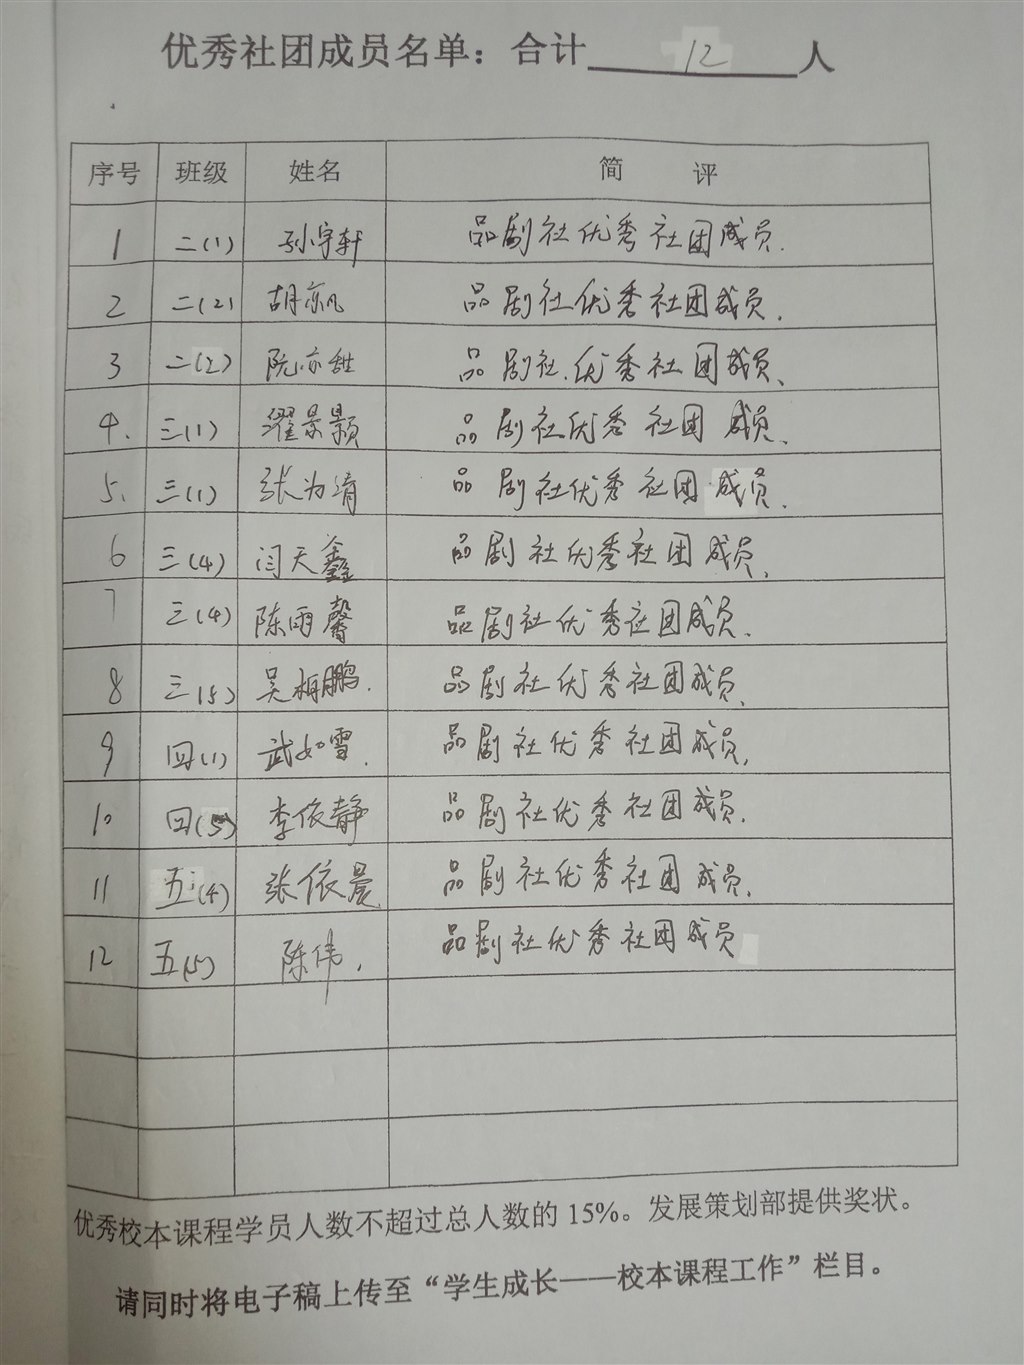 优秀社团成员名单：合计 12 人
序号 班级 姓名 简 评
1 二(1) 孙宇轩 品剧社优秀社团成员.
2 二(2) 胡亦凡 品剧社优秀社团成员.
3 二(2) 阮亦甜 品剧社.优秀社团成员、
4. 三(1) 濯景颢 品剧社优秀社团成员、
5. 三(1) 张为清 品剧社优秀社团成员.
6 三(4) 闫天鑫 品剧社优秀社团成员.
7 三(4) 陈雨馨 品剧社优秀社团成员.
8 三(5) 吴桐鹏. 品剧社优秀社团成员.
9 四(1) 武如雪. 品剧社优秀社团成员.
10 四(5) 李依静 品剧社优秀社团成员.
11 五(4) 张依晨 品剧社优秀社团成员.
12 五(5) 陈伟. 品剧社优秀社团成员
优秀校本课程学员人数不超过总人数的 15%。发展策划部提供奖状。
请同时将电子稿上传至“学生成长——校本课程工作”栏目。